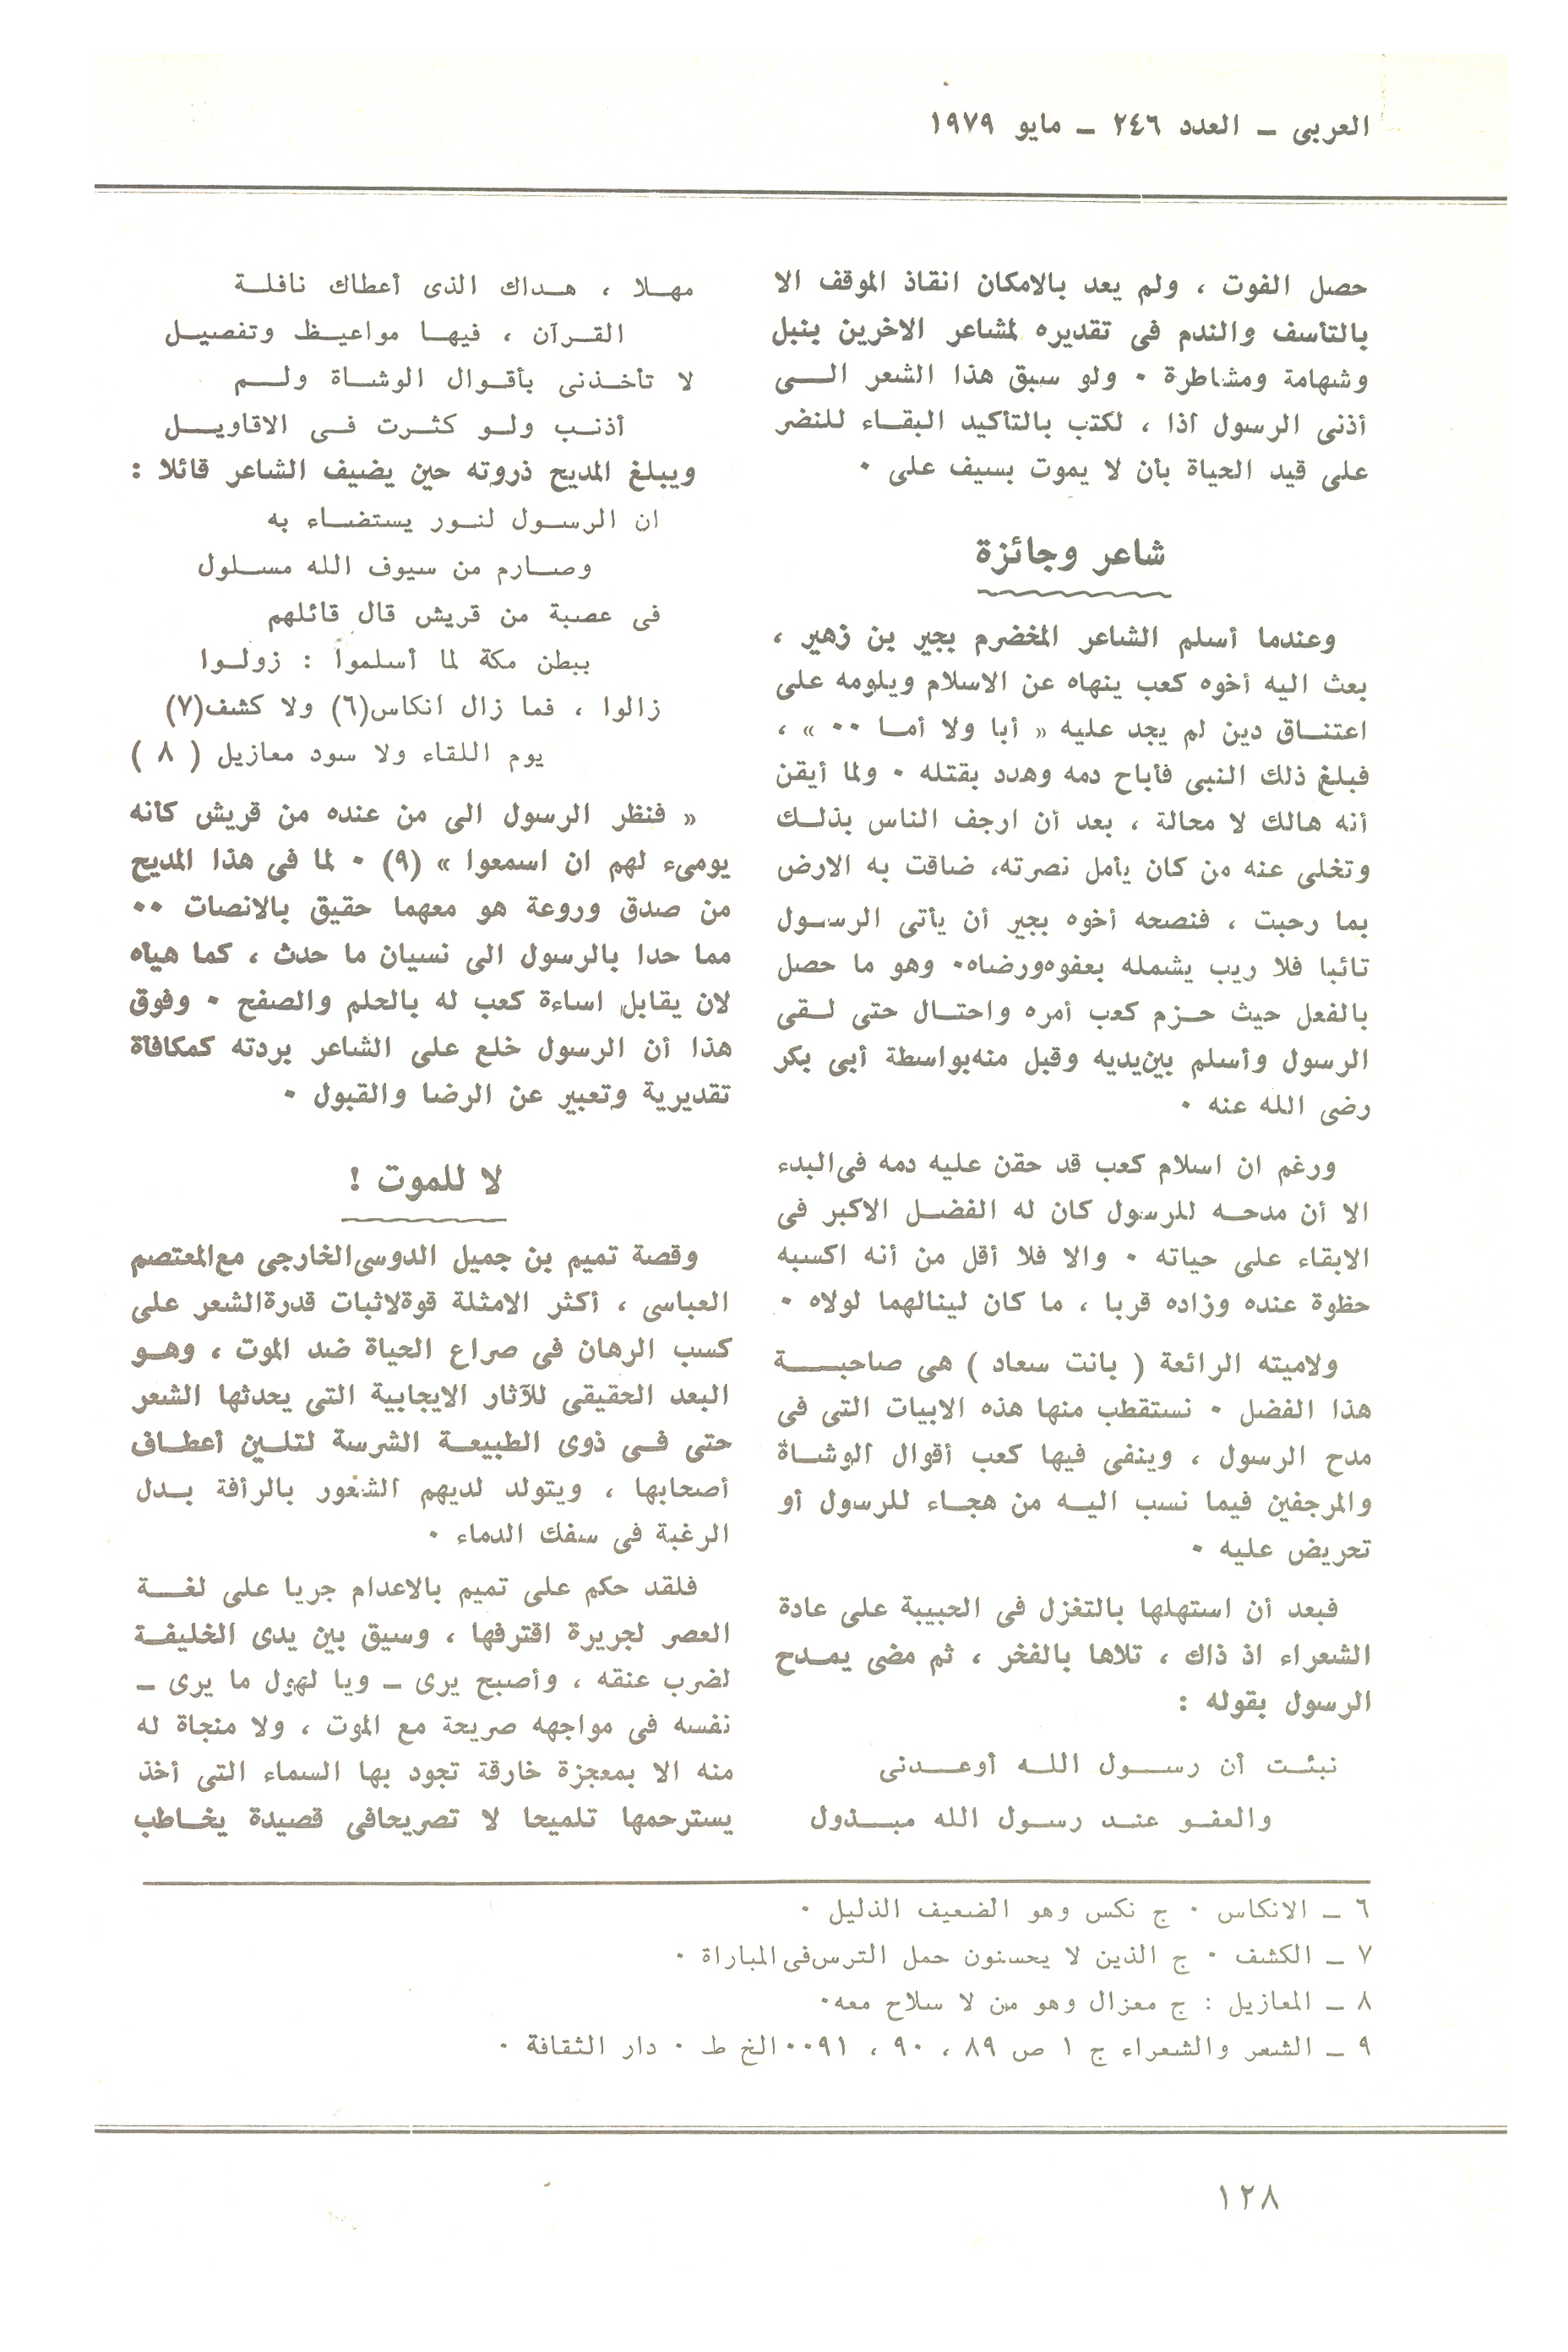 العربى – العدد ٢٤٦ – مايو ١٩٧٩
حصل الفوت ، ولم يعد بالامكان انقاذ الموقف الا
بالتأسف والندم فى تقديره لمشاعر الاخرين بنبل
وشهامة ومشاطرة ٠ ولو سبق هذا الشعر الـــى
أذنى الرسول آذا ، لكتب بالتأكيد البقــاء للنضر
على قيد الحياة بأن لا يموت بسيف على ٠
شاعر وجائزة
وعندما أسلم الشاعر المخضرم بجير بن زهير ،
بعث اليه أخوه كعب ينهاه عن الاسلام ويلومه على
اعتنــاق دين لم يجد عليه « أبا ولا أمــا ٠٠ » ،
فبلغ ذلك النبى فأباح دمه وهدد بقتله ٠ ولما أيقن
أنه هالك لا محالة ، بعد أن ارجف الناس بذلــك
وتخلى عنه من كان يأمل نصرته، ضاقت به الارض
بما رحبت ، فنصحه أخوه بجير أن يأتى الرســول
تائبا فلا ريب يشمله بعفوه‌ورضاه٠ وهو ما حصل
بالفعل حيث حــزم كعب أمره واحتــال حتى لــقى
الرسول وأسلم بين‌يديه وقبل منه‌بواسطة أبى بكر
رضى الله عنه ٠
ورغم ان اسلام كعب قد حقن عليه دمه فى‌البدء
الا أن مدحــه للرسول كان له الفضــل الاكبر فى
الابقاء على حياته ٠ والا فلا أقل من أنه اكسبه
حظوة عنده وزاده قربا ، ما كان لينالهما لولاه ٠
ولاميته الرائعة ( بانت سعاد ) هى صاحبــــة
هذا الفضل ٠ نستقطب منها هذه الابيات التى فى
مدح الرسول ، وينفى فيها كعب أقوال الوشــاة
والمرجفين فيما نسب اليــه من هجــاء للرسول أو
تحريض عليه ٠
فبعد أن استهلها بالتغزل فى الحبيبة على عادة
الشعراء اذ ذاك ، تلاها بالفخر ، ثم مضى يمــدح
الرسول بقوله :
نبئــت أن رســـول اللــه أوعـــدنى
والعفــو عنــد رســول الله مبـــذول
مهــلا ، هــداك الذى أعطاك نافلــة
القــرآن ، فيهــا مواعيــظ وتفصيــل
لا تأخــذنى بأقــوال الوشــاة ولـــم
أذنــب ولــو كثــرت فــى الاقاويـــل
ويبلغ المديح ذروته حين يضيف الشاعر قائلا :
ان الرســول لنــور يستضــاء به
وصــارم من سيوف الله مســلول
فى عصبة من قريش قال قائلهم
ببطن مكة لما أسلموا : زولــوا
زالوا ، فما زال انكاس(٦) ولا كشف(٧)
يوم اللقاء ولا سود معازيل ( ٨ )
« فنظر الرسول الى من عنده من قريش كأنه
يومىء لهم ان اسمعوا » (٩) ٠ لما فى هذا المديح
من صدق وروعة هو معهما حقيق بالانصات ٠٠
مما حدا بالرسول الى نسيان ما حدث ، كما هيأه
لان يقابل اساءة كعب له بالحلم والصفح ٠ وفوق
هذا أن الرسول خلع على الشاعر بردته كمكافأة
تقديرية وتعبير عن الرضا والقبول ٠
لا للموت !
وقصة تميم بن جميل الدوسى‌الخارجى مع‌المعتصم
العباسى ، أكثر الامثلة قوة‌لاثبات قدرة‌الشعر على
كسب الرهان فى صراع الحياة ضد الموت ، وهــو
البعد الحقيقى للآثار الايجابية التى يحدثها الشعر
حتى فــى ذوى الطبيعــة الشرسة لتلــين أعطــاف
أصحابها ، ويتولد لديهم الشعور بالرأفة بــدل
الرغبة فى سفك الدماء ٠
فلقد حكم على تميم بالاعدام جريا على لغـــة
العصر لجريرة اقترفها ، وسيق بين يدى الخليفــة
لضرب عنقه ، وأصبح يرى – ويا لهول ما يرى –
نفسه فى مواجهه صريحة مع الموت ، ولا منجاة له
منه الا بمعجزة خارقة تجود بها السماء التى أخذ
يسترحمها تلميحا لا تصريحافى قصيدة يخــاطب
٦ – الانكاس ٠ ج نكس وهو الضعيف الذليل ٠
٧ – الكشف ٠ ج الذين لا يحسنون حمل الترس‌فى‌المباراة ٠
٨ – المعازيل : ج معزال وهو من لا سلاح معه٠
٩ – الشعر والشعراء ج ١ ص ٨٩ ، ٩٠ ، ٩١٠٠الخ ط ٠ دار الثقافة ٠
١٢٨